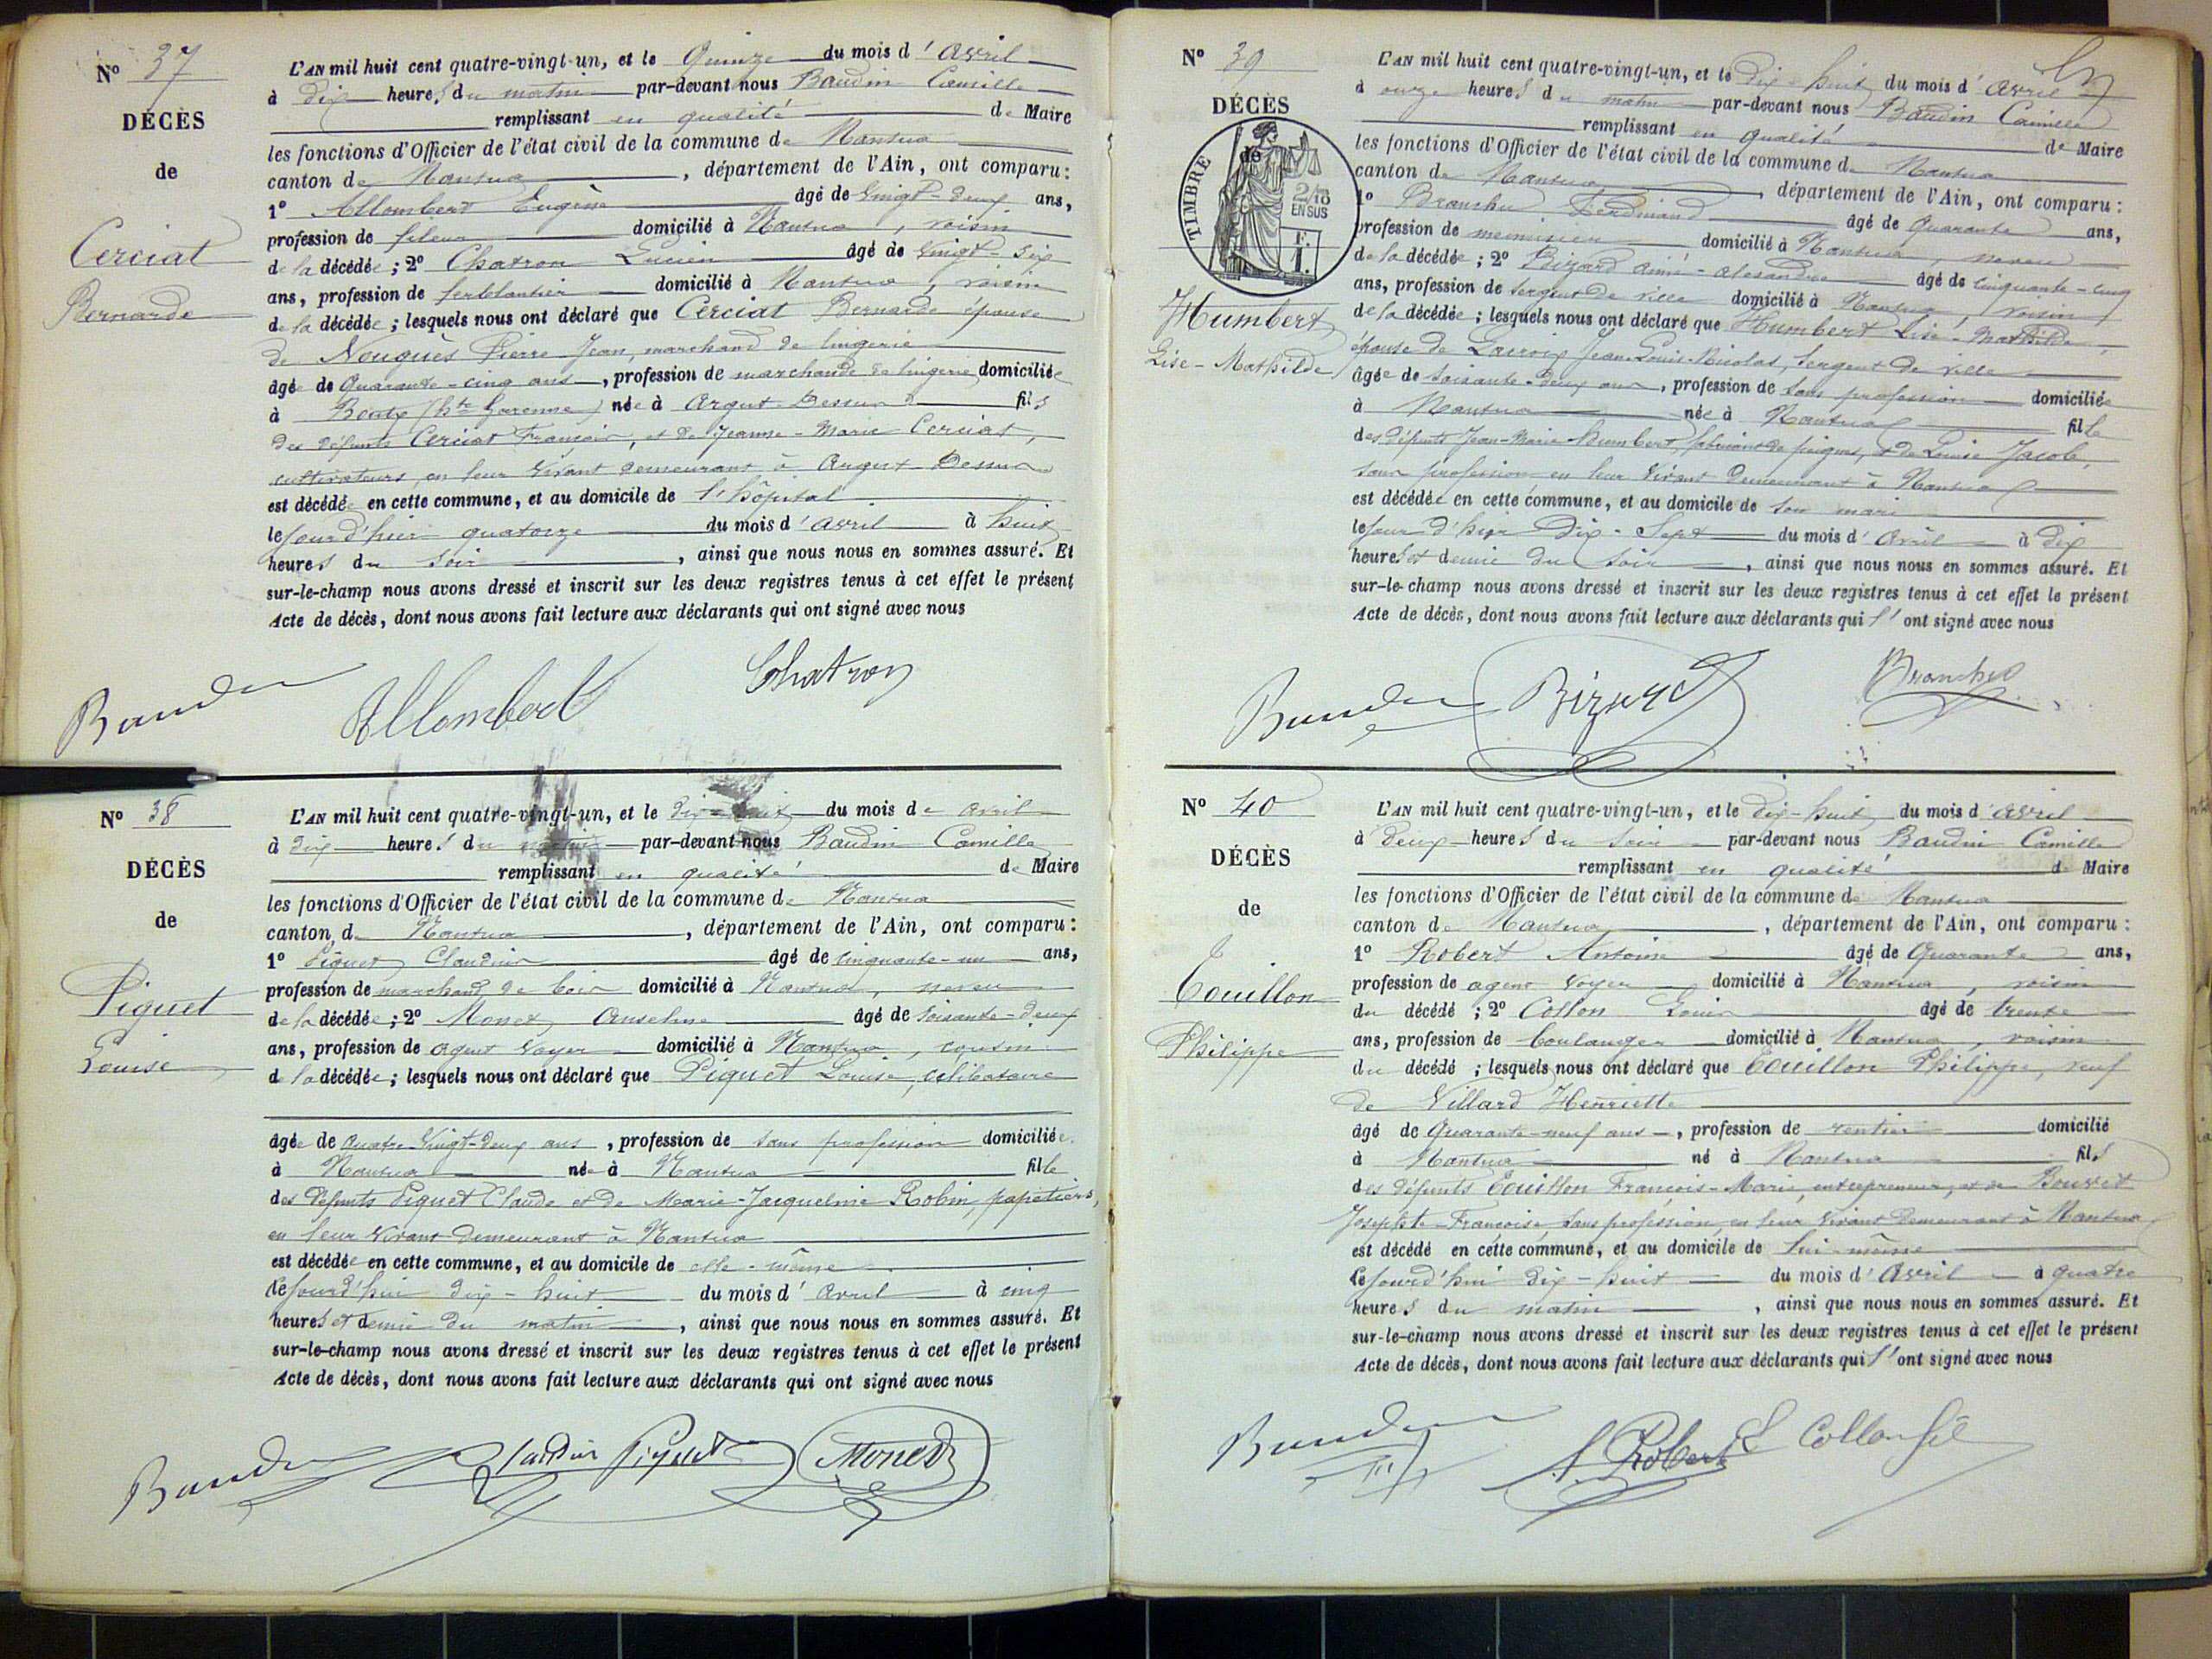 N° 37
DÉCÈS
de
Cerciat
Bernarde
L'AN mil huit cent quatre-vingt-un, et le Quinze du mois d'Avril
à dix heures du matin par-devant nous Baudin Camille
remplissant en qualité de Maire
les fonctions d'Officier de l'état civil de la commune de Nantua
canton de Nantua, département de l'Ain, ont comparu:
1° Allombert Eugène âgé de Vingt-deux ans,
profession de fileur domicilié à Nantua, voisin
de la décédée; 2° Chatron Lucien âgé de Vingt-six
ans, profession de ferblantier domicilié à Nantua, voisin
de la décédée; lesquels nous ont déclaré que Cerciat Bernarde épouse
de Nouguès Pierre Jean, marchand de lingerie
âgée de Quarante-cinq ans, profession de marchande de lingerie domiciliée
à (hte Garonne) née à Argut-Dessus fils
des défunts Cerciat François, et de Jeanne-Marie Cerciat,
cultivateurs, en leur vivant demeurant à Argut-Dessus
est décédée en cette commune, et au domicile de l'hôpital
le jour d'hier quatorze du mois d'Avril à huit
heures du soir, ainsi que nous nous en sommes assuré. Et
sur-le-champ nous avons dressé et inscrit sur les deux registres tenus à cet effet le présent
Acte de décès, dont nous avons fait lecture aux déclarants qui ont signé avec nous
Baudin Allombert Chatron
N° 38
DÉCÈS
de
Piquet
Louise
L'AN mil huit cent quatre-vingt-un, et le dix-huit du mois de avril
à dix heures du matin par-devant nous Baudin Camille
remplissant en qualité de Maire
les fonctions d'Officier de l'état civil de la commune de Nantua
canton de Nantua, département de l'Ain, ont comparu:
1° Piquet Claudius âgé de cinquante-un ans,
profession de marchand de bois domicilié à Nantua, neveu
de la décédée; 2° Monet Anselme âgé de soisante-deux
ans, profession de agent Voyer domicilié à Nantua, cousin
d la décédée; lesquels nous ont déclaré que Piquet Louise, célibataire
âgée de quatre Vingt-deux ans, profession de sans profession domiciliée
à Nantua née à Nantua fille
des défunts Piquet Claude et de Marie-Jacqueline Robin, papetiers,
en leur Vivant demeurant à Nantua
est décédée en cette commune, et au domicile de elle-même
le jourd'hui dix-huit du mois d'Avril à cinq
heures et demie du matin, ainsi que nous nous en sommes assuré. Et
sur-le-champ nous avons dressé et inscrit sur les deux registres tenus à cet effet le présent
Acte de décès, dont nous avons fait lecture aux déclarants qui ont signé avec nous
Baudin Claudius Piquet Monet
N° 39
DÉCÈS
de
TIMBRE
2/10
EN SUS
F.
1.
Humbert
Lise-Mathilde
L'AN mil huit cent quatre-vingt-un, et le dix-huit du mois d'avril
à onze heures du matin par-devant nous Baudin Camille
remplissant en qualité de Maire
les fonctions d'Officier de l'état civil de la commune de Nantua
canton de Nantua département de l'Ain, ont comparu:
1° Branche Ferdinand âgé de Quarante ans,
profession de menuisier domicilié à Nantua, neveu
de la décédée; 2° Bizard aimé-alexandre âgé de cinquante-cinq
ans, profession de Sergent de ville domicilié à Nantua, voisin
de la décédée; lesquels nous ont déclaré que Humbert Lise-Mathilde,
épouse de Lacroix Jean-Louis-Nicolas, Sergent de ville
âgée de Soisante-deux ans, profession de sans profession domiciliée
à Nantua née à Nantua fille
des défunts Jean-Marie Humbert, fabricant de peignes, et de Louise Jacob,
sans profession en leur vivant demeurant à Nantua
est décédée en cette commune, et au domicile de son mari
le jour d'hier dix-Sept du mois d'Avril à dix
heures et demie du soir, ainsi que nous nous en sommes assuré. Et
sur-le-champ nous avons dressé et inscrit sur les deux registres tenus à cet effet le présent
Acte de décès, dont nous avons fait lecture aux déclarants qui l'ont signé avec nous
Baudin Bizard Branche
N° 40
DÉCÈS
de
Touillon
Philippe
L'AN mil huit cent quatre-vingt-un, et le dix-huit du mois d'Avril
à Deux heures du soir par-devant nous Baudin Camille
remplissant en qualité de Maire
les fonctions d'Officier de l'état civil de la commune de Nantua
canton de Nantua, département de l'Ain, ont comparu:
1° Robert Antoine âgé de Quarante ans,
profession de agent Voyer domicilié à Nantua, voisin
du décédé; 2° Collon Louis âgé de trente
ans, profession de boulanger domicilié à Nantua, voisin
du décédé; lesquels nous ont déclaré que Touillon Philippe, veuf
de Villard Henriette
âgé de Quarante-neuf ans, profession de rentier domicilié
à Nantua né à Nantua fils
des défunts Touillon François-Marie, entrepreneur, et de Bouvet
Josephte-Françoise sans profession, en leur Vivant demeurant à Nantua
est décédé en cette commune, et au domicile de lui-même
le jourd'hui dix-huit du mois d'Avril à quatre
heures du matin, ainsi que nous nous en sommes assuré. Et
sur-le-champ nous avons dressé et inscrit sur les deux registres tenus à cet effet le présent
Acte de décès, dont nous avons fait lecture aux déclarants qui l'ont signé avec nous
Baudin A. Robert L Collon fils